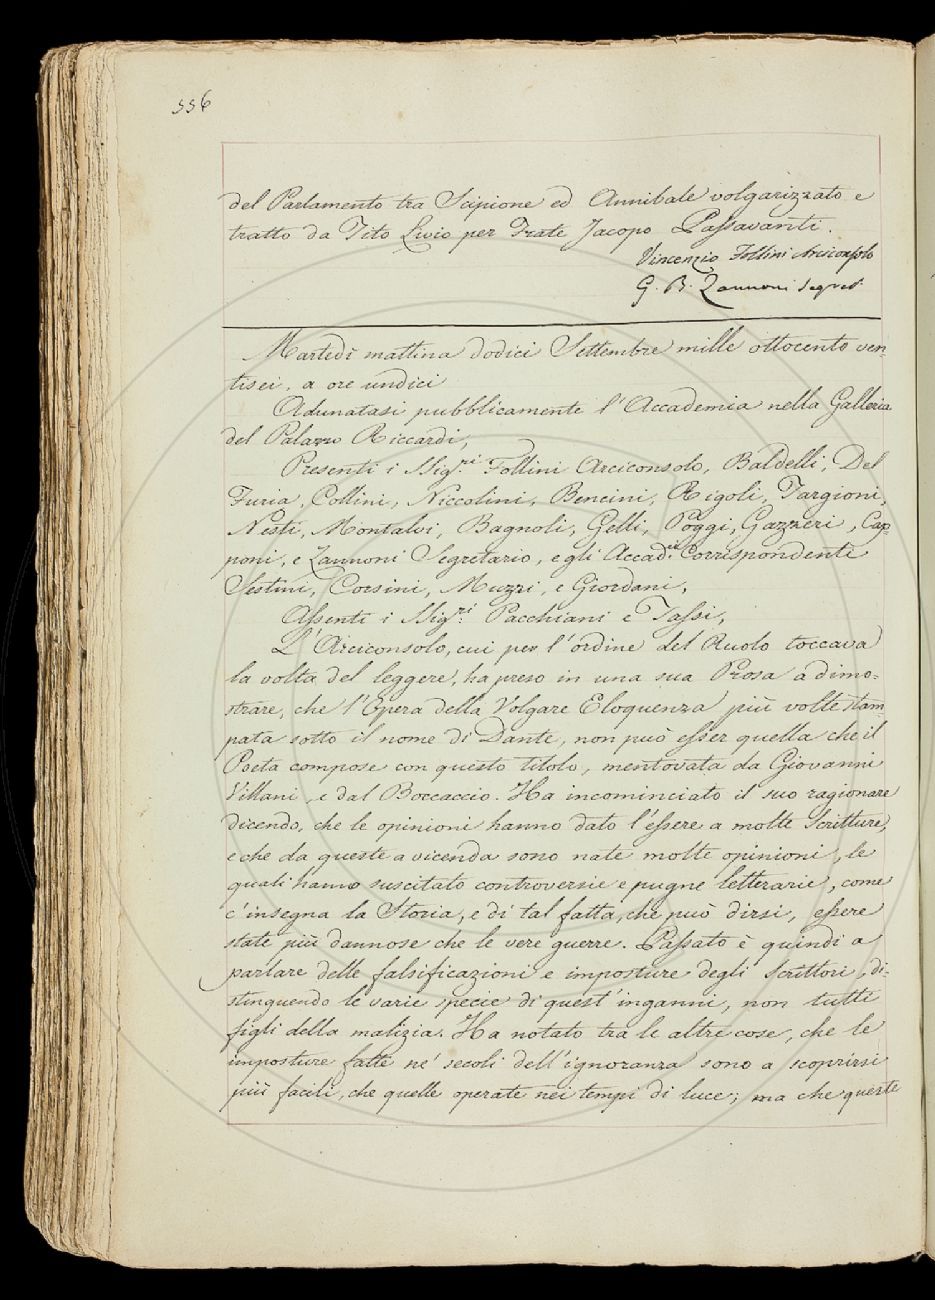 556
del Parlamento tra Scipione ed Annibale volgarizzato e
tratto da Tito Livio per Frate Jacopo Passavanti.
Vincenzio Follini Arciconsolo
G. B. Zannoni Segret.º
Martedì mattina dodici Settembre mille ottocento ven-
tisei, a ore undici
Adunatasi pubblicamente l'Accademia nella Galleria
del Palazzo Riccardi,
Presenti i Sig.ri Follini Arciconsolo, Baldelli, Del
Furia, Collini, Niccolini, Bencini, Rigoli, Targioni,
Nesti, Montalvi, Bagnoli, Gelli, Poggi, Gazzeri, Cap-
poni, e Zannoni Segretario, e gli Accad.ci Corrispondenti
Sestini, Corsini, Muzzi, e Giordani,
Assenti i Sig.ri Pacchiani e Tassi,
L'Arciconsolo, cui per l'ordine del Ruolo toccava
la volta del leggere, ha preso in una sua Prosa a dimo-
strare, che l'Opera della Volgare Eloquenza più volte stam
pata sotto il nome di Dante, non può esser quella che il
Poeta compose con questo titolo, mentovata da Giovanni
Villani, e dal Boccaccio. Ha incominciato il suo ragionare
dicendo, che le opinioni hanno dato l'essere a molte Scritture,
e che da queste a vicenda sono nate molte opinioni, le
quali hanno suscitato controversie e pugne letterarie, come
c'insegna la Storia, e di tal fatta, che può dirsi, essere
state più dannose che le vere guerre. Passato è quindi a
parlare delle falsificazioni e imposture degli Scrittori, di-
stinguendo le varie specie di quest'inganni, non tutti
figli della malizia. Ha notato tra le altre cose, che le
imposture fatte ne' secoli dell'ignoranza sono a scoprirsi
più facili, che quelle operate nei tempi di luce; ma che queste